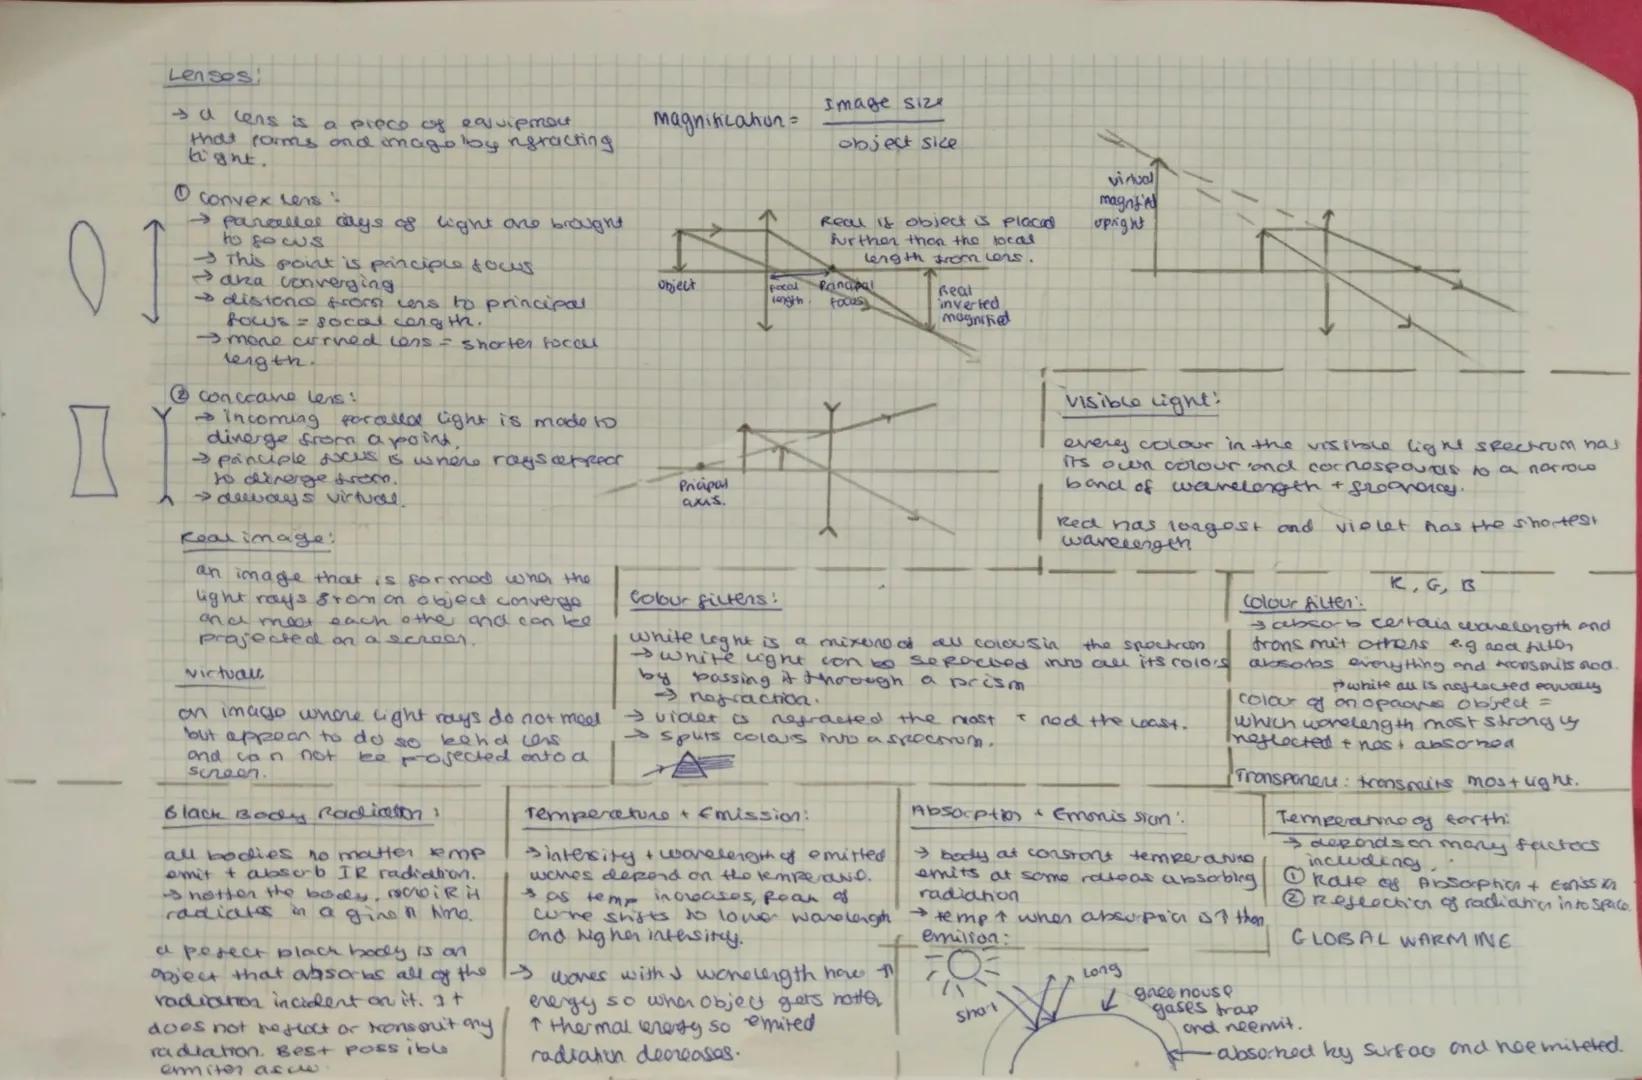 Lenses:
→ a lens is a piece of equipment
that forms and image by refracting
light.
① convex lens:
→ parallel rays of light are brought
to focus
→ This point is principle focus
→ aka converging
→ distance from lens to principal
focus = focal length.
→ more curved lens = shorter focal
length.
② conccave lens:
→ incoming parallel light is made to
diverge from a point.
→ principle focus is where rays appear
to diverge from.
→ always virtual.
Magnification = Image size
object size
object
focal
length
Principal
focus
Real if object is placed
further than the focal
length from lens.
Real
inverted
magnified
virtual
magnified
upright
Pricipal
axis.
Visible light:
every colour in the visible light spectrum has
its own colour and corresponds to a narrow
band of wavelength + frequency.
Red has longest and violet has the shortest
wavelength
Real image:
an image that is formed when the
light rays from an object converge
and meet each other and can be
projected on a screen.
Virtual
an image where light rays do not meet
but appear to do so behind lens
and can not be projected onto a
screen.
Colour filters:
white light is a mixture of all colours in the spectrum
→ white light can be separated into all its colors
by passing it thorough a prism
→ refraction.
→ violet is refracted the most + red the least.
→ splits colours into a spectrum.
R, G, B
Colour filter:
→ absorb certain wavelength and
transmit others e.g red filter
absorbs everything and transmits red.
→ white all is reflected equally
colour of an opaque object =
which wavelength most strongly
reflected + not absorbed
Transparent: transmits most light.
Black Body Radiation:
all bodies no matter temp
emit + absorb IR radiation.
→ hotter the body, more IR it
radiates in a given time.
a perfect black body is an
object that absorbs all of the
radiation incident on it. It
does not reflect or transmit any
radiation. Best possible
emitter
Temperature + Emission:
→ intensity + wavelength of emitted
waves depend on the temperature.
→ as temp increases, peak of
curve shifts to lower wavelength
and higher intensity.
→ waves with ↓ wavelength have ↑
energy so when object gets hotter
↑ thermal energy so emitted
radiation decreases.
Absorption +
→ body at constant temperature
emits at same rate as absorbing
radiation
→ temp ↑ when absorption is ↑ than
emission:
short
long
greenouse
gases trap
and reemit.
absorbed by surface and reemitted.
Temperature of earth:
→ depends on many factors
including:
① Rate of Absorption + Emission
② Reflection of radiation into space.
GLOBAL WARMING